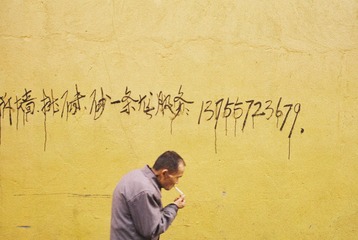 拆墙.挑碌.砂一条龙服务 13755723679.